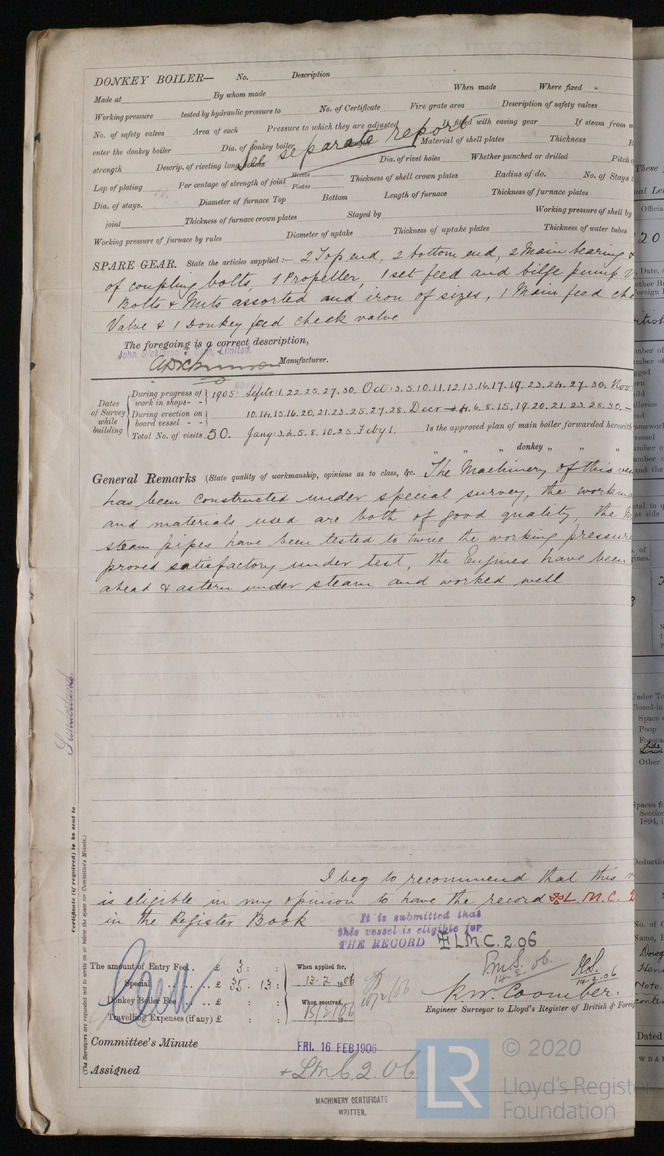 DONKEY BOILER— No. Description
Made at By whom made When made Where fixed
Working pressure tested by hydraulic pressure to No. of Certificate Fire grate area Description of safety valves
No. of safety valves Area of each Pressure to which they are adjusted If fitted with easing gear If steam from
enter the donkey boiler Dia. of donkey boiler Material of shell plates Thickness
See separate report
strength Descrip. of riveting long. Dia. of rivet holes Whether punched or drilled Pitch
Lap of plating Per centage of strength of joint Rivets Plates Thickness of shell crown plates Radius of do. No. of Stays
Dia. of stays. Diameter of furnace Top Bottom Length of furnace Thickness of furnace plates
joint Thickness of furnace crown plates Stayed by Working pressure of shell by
Working pressure of furnace by rules Diameter of uptake Thickness of uptake plates Thickness of water tubes
SPARE GEAR. State the articles supplied:— 2 Top end, 2 bottom end, 2 Main bearing &
of coupling bolts, 1 Propeller, 1 set feed and bilge pump
Bolts & Nuts assorted and iron of sizes, 1 Main feed
Valve & 1 Donkey feed check valve
The foregoing is a correct description,
John Dickinson & Sons, Limited.
Manufacturer.
Dates of Survey while building
During progress of work in shops - - 1905 Sept: 1. 22. 25. 27. 30. Oct: 3. 5. 10. 11. 12. 13. 16. 17. 19. 23. 24. 27. 30. Nov
During erection on board vessel - - - 10. 14. 15. 16. 20. 21. 23. 25. 27. 28. Decr 4. 6. 8. 15. 19. 20. 21. 23. 28. 30. —
Total No. of visits 50. Jany: 3. 4. 5. 8. 10. 25. Feby 1. Is the approved plan of main boiler forwarded herewith
" " " donkey " " "
General Remarks (State quality of workmanship, opinions as to class, &c. The Machinery of this
has been constructed under special survey, the
and materials used are both of good quality, the
steam pipes have been tested to twice the working pressure
proved satisfactory under test, the Engines have been
ahead & astern under steam and worked well
Sunderland.
Certificate (if required) to be sent to
(The Surveyors are requested not to write on or below the space for Committee's Minute.)
I beg to recommend that this
is eligible in my opinion to have the record ✠L.M.C. 2
in the Register Book
It is submitted that
this vessel is eligible for
THE RECORD ✠LMC. 2.06
The amount of Entry Fee. . £ 3 : :
Special . . . . £ 35 : 13 :
Donkey Boiler Fee . . . £ : :
Travelling Expenses (if any) £ : :
When applied for,
13.2.1906
When received,
15/2/06
K.W. Coomber.
Engineer Surveyor to Lloyd's Register of British &
Committee's Minute
FRI. 16 FEB 1906
Assigned
+ LMC 2.06
MACHINERY CERTIFICATE
WRITTEN.
LR
© 2020
Lloyd's Register
Foundation